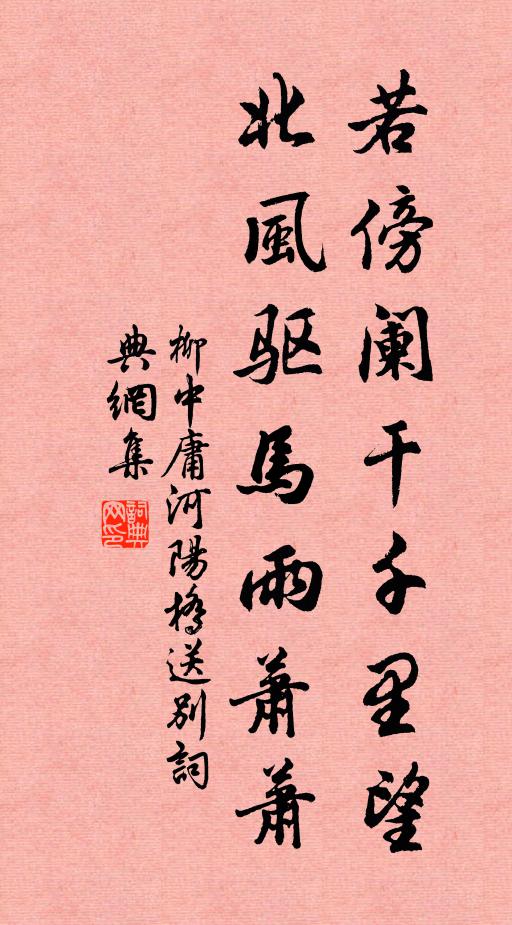 若傍阑干千里望
北風驱馬雨蕭蕭
柳中庸河陽橋送別詞
典網集
詞典网印